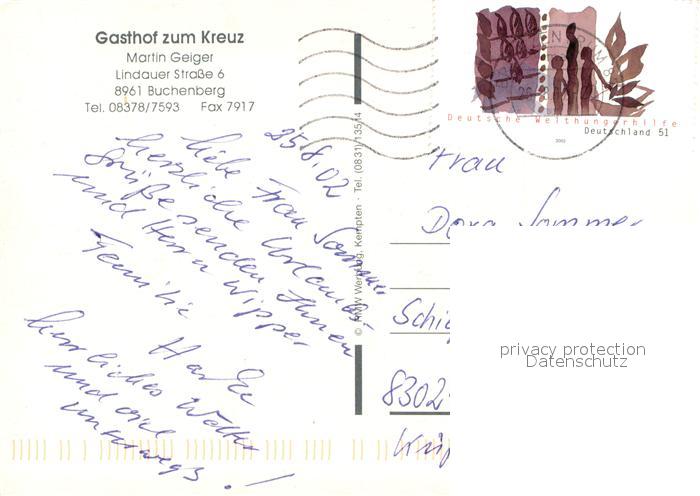 Gasthof zum Kreuz
Martin Geiger
Lindauer Straße 6
8961 Buchenberg
Tel. 08378/7593 Fax 7917
Deutsche Welthungerhilfe
Deutschland 51
2002
25.8.02
liebe Frau Sommer
herzliche Urlaubs-
grüße senden Ihnen
und Herrn Wipper
Familie
herrliches Wetter
und viel
unterwegs!
© HMW Werbung, Kempten · Tel. (0831) 13514
Frau
Dora Sommer
8302
privacy protection
Datenschutz